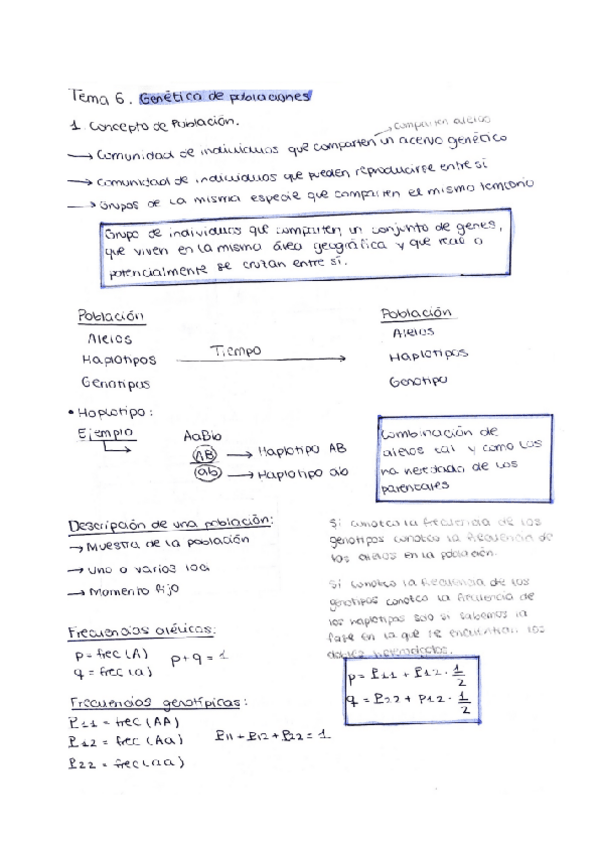 Tema 6. Genética de poblaciones
1. Concepto de Población.
comparten alelos
→ Comunidad de individuos que comparten un acervo genético
→ Comunidad de individuos que pueden reproducirse entre sí
→ Grupos de la misma especie que comparten el mismo territorio
Grupo de individuos que comparten un conjunto de genes,
que viven en la misma área geográfica y que real o
potencialmente se cruzan entre sí.
Población
Alelos
Haplotipos
Genotipos
Tiempo
Población
Alelos
Haplotipos
Genotipo
• Haplotipo:
Ejemplo
AaBb
AB → Haplotipo AB
ab → Haplotipo ab
Combinación de
alelos tal y como los
ha heredado de los
parentales
Descripción de una población:
→ Muestra de la población
→ Uno o varios loci
→ Momento fijo
Si conozco la frecuencia de los
genotipos conozco la frecuencia de
los alelos en la población.
Si conozco la frecuencia de los
genotipos conozco la frecuencia de
los haplotipos solo si sabemos la
fase en la que se encuentran los
dobles heterocigotos.
Frecuencias alélicas:
p = frec (A)
q = frec (a)
p + q = 1
Frecuencias genotípicas:
P11 = frec (AA)
P12 = frec (Aa)
P22 = frec (aa)
P11 + P12 + P22 = 1
p = P11 + P12 · 1/2
q = P22 + P12 · 1/2